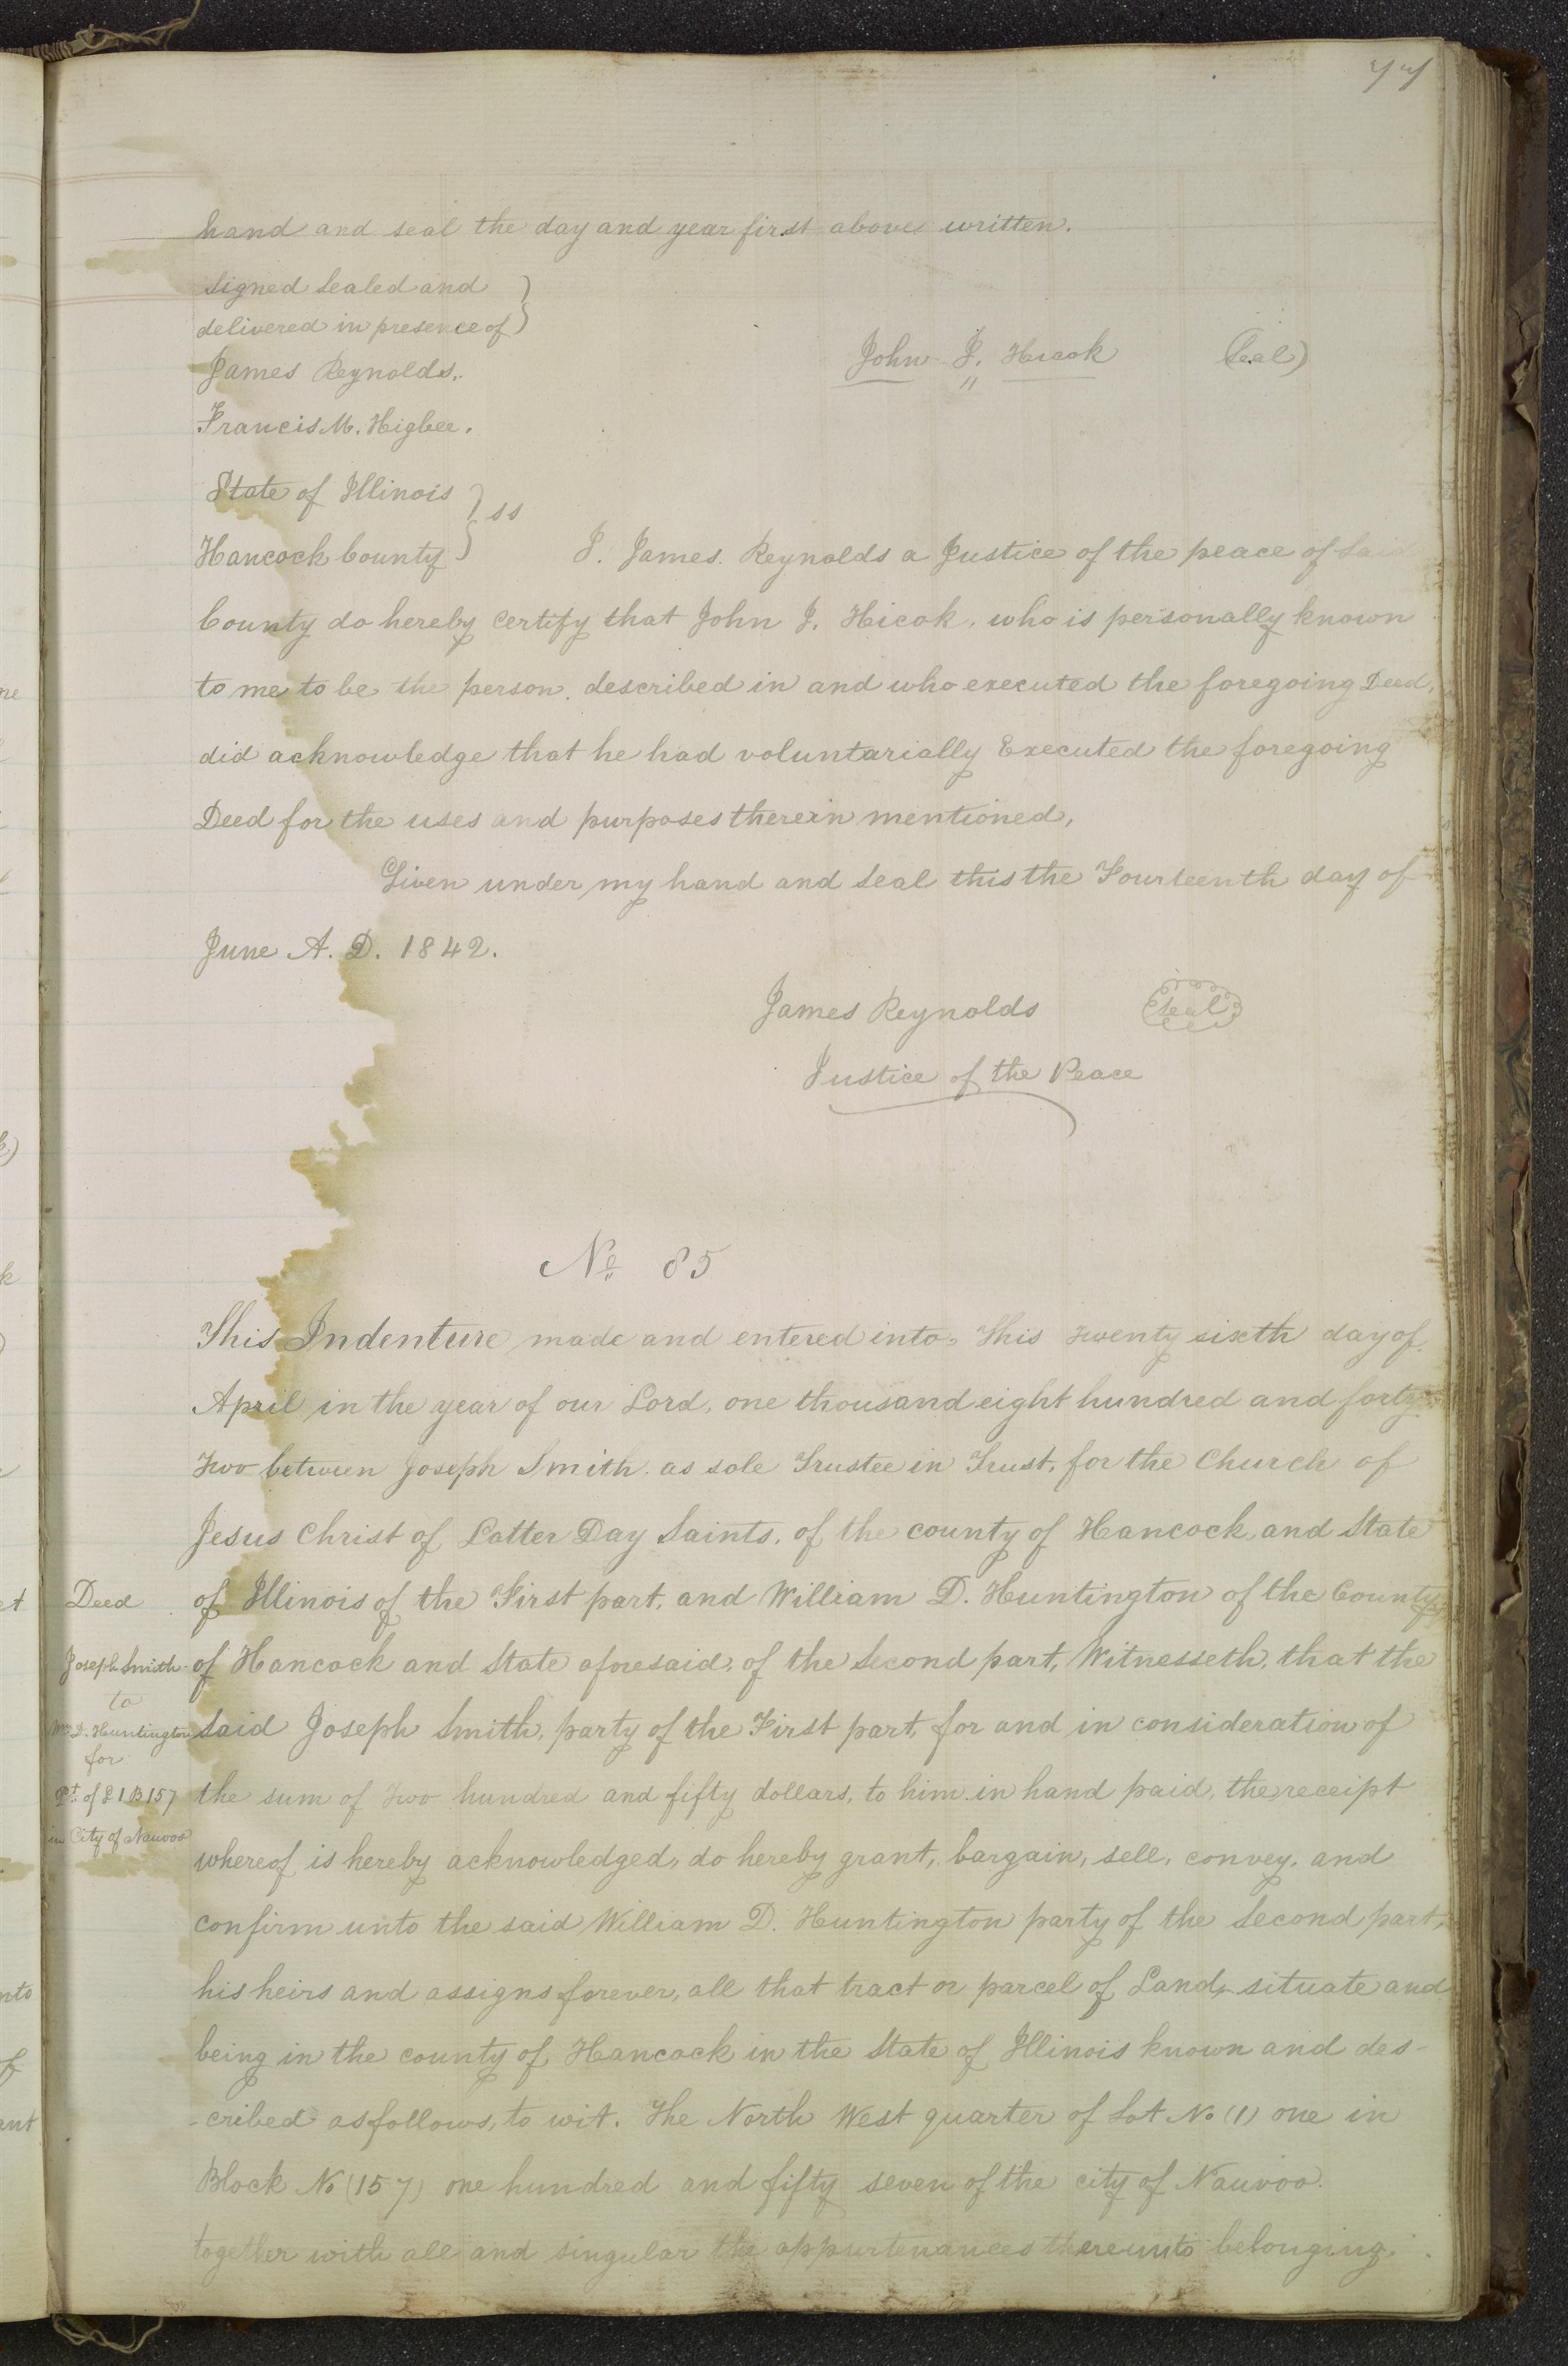 77
hand and seal the day and year first above written.
Signed Sealed and
delivered in presence of
James Reynolds,
Francis M. Higbee.
John J. Hicok (Seal)
State of Illinois
Hancock County } ss
I. James. Reynolds a Justice of the peace of Said
County do hereby Certify that John J. Hicok, who is personally known
to me to be the person. described in and who executed the foregoing Deed,
did acknowledge that he had voluntarially Executed the foregoing
Deed for the uses and purposes therein mentioned,
Given under my hand and Seal this the Fourteenth day of
June A. D. 1842.
James Reynolds (Seal)
Justice of the Peace
No. 85
This Indenture made and entered into, This Twenty sixth day of
April in the year of our Lord, one thousand eight hundred and forty
Two between Joseph Smith. as sole Trustee in Trust, for the Church of
Jesus Christ of Latter Day Saints, of the county of Hancock, and State
of Illinois of the First part, and William D. Huntington of the County
of Hancock and State aforesaid, of the Second part, Witnesseth, that the
Said Joseph Smith, party of the First part, for and in consideration of
the sum of Two hundred and fifty dollars, to him in hand paid, the receipt
whereof is hereby acknowledged, do hereby grant, bargain, sell, convey, and
confirm unto the said William D. Huntington party of the Second part,
his heirs and assigns forever, all that tract or parcel of Land, situate and
being in the county of Hancock in the State of Illinois known and des-
-cribed as follows, to wit. The North West quarter of Lot No (1) one in
Block No (157) one hundred and fifty seven of the city of Nauvoo.
together with all and singular the appurtenances thereunto belonging.
Deed
Joseph Smith
to
Wm D. Huntington
for
Pt. of L 1 B 157
in City of Nauvoo